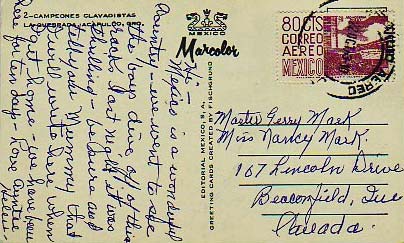 2-CAMPEONES CLAVADISTAS
LA QUEBRADA, ACAPULCO, GRO.
MEXICO
Marcolor
EDITORIAL MEXICO, S. A.
GREETING CARDS CREATED BY FISCHGRUND
80 CTS
CORREO
AEREO
MEXICO
AEREO
Hi -
Mexico is a wonderful
country - we went to see
the boys dive off of this
rock last night it was
thrilling - be sure and
tell your Mummy that
I will write to her when
I get home - we have been
here for ten days - Love Auntie
Helen
Master Gerry Mark
Miss Nancy Mark,
107 Lincoln Drive
Beaconfield, Que
Canada.